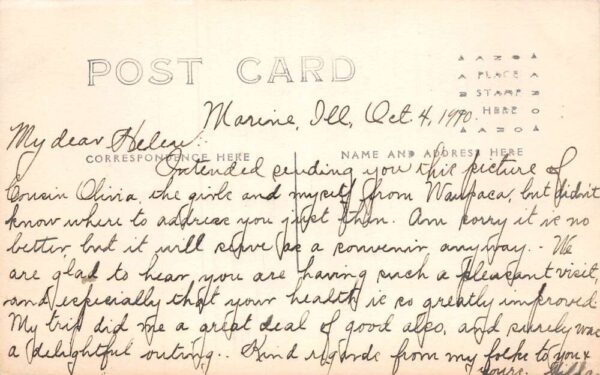 POST CARD
AZO
PLACE
STAMP
HERE
AZO
Marine, Ill, Oct 4, 1910.
My dear Helen:
CORRESPONDENCE HERE
NAME AND ADDRESS HERE
Intended sending you this picture of
Cousin Olivia, the girls and myself from Waupaca, but didn't
know where to address you just then. Am sorry it is no
better, but it will serve as a souvenir anyway. - We
are glad to hear you are having such a pleasant visit,
and especially that your health is so greatly improved.
My trip did me a great deal of good also, and surely was
a delightful outing. . Kind regards from my folks to you &
yours. Hilda